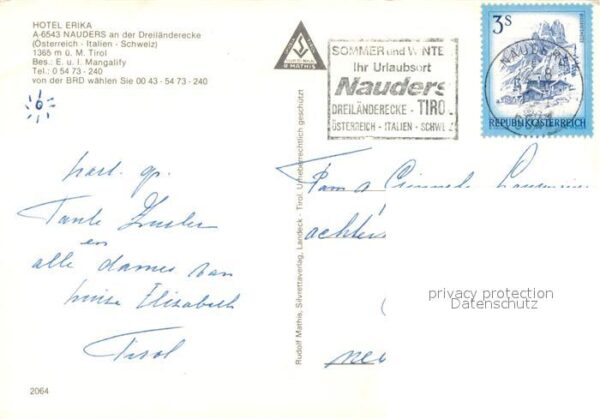 HOTEL ERIKA
A-6543 NAUDERS an der Dreiländerecke
(Österreich - Italien - Schweiz)
1365 m ü. M. Tirol
Bes.: E. u. I. Mangalify
Tel.: 0 54 73 - 240
von der BRD wählen Sie 00 43 - 54 73 - 240
6
hart. gr.
Tante Zuster
en
alle dames van
huize Elisabeth
Tirol
2064
Rudolf Mathis, Silvrettaverlag, Landeck - Tirol. Urheberrechtlich geschützt
SOMMER und WINTE
Ihr Urlaubsort
Nauders
DREILÄNDERECKE - TIRO
ÖSTERREICH - ITALIEN - SCHWEIZ
3S
NAUDERS
REPUBLIK ÖSTERREICH
Fam
privacy protection
Datenschutz